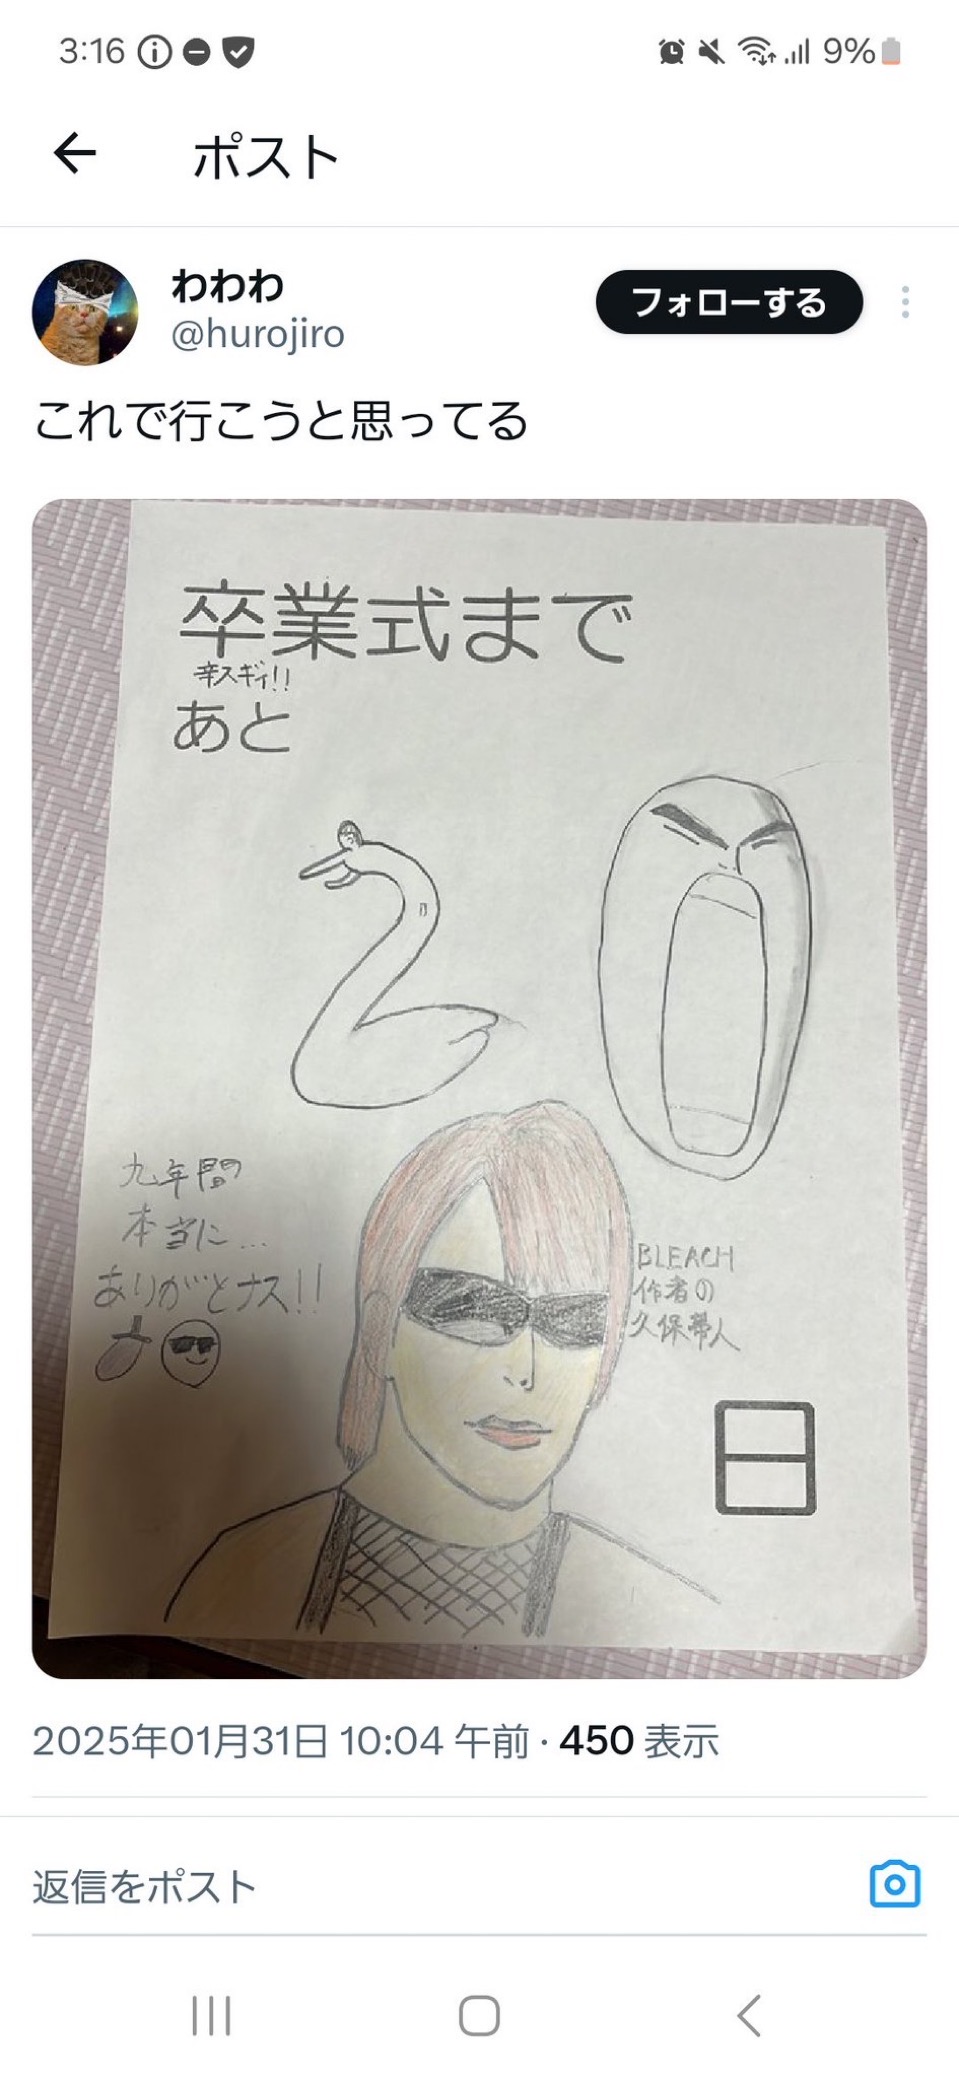 3:16
9%
ポスト
わわわ
@hurojiro
フォローする
これで行こうと思ってる
卒業式まで
辛スギィ!!
あと
20
九年間の
本当に…
ありがとナス!!
BLEACH
作者の
久保帯人
日
2025年01月31日 10:04 午前 · 450 表示
返信をポスト